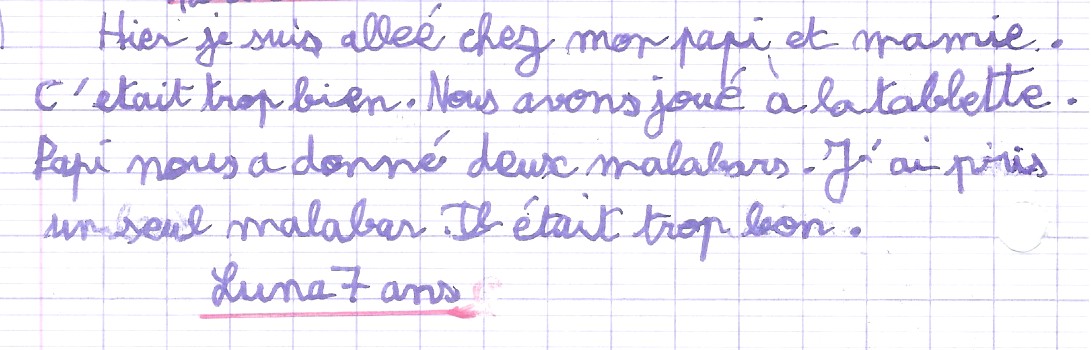 Hier je suis alleé chez mon papi et mamie.
C'etait trop bien. Nous avons joué à la tablette.
Papi nous a donné deux malabars. J'ai pris
un seul malabar. Il était trop bon.
Luna 7 ans